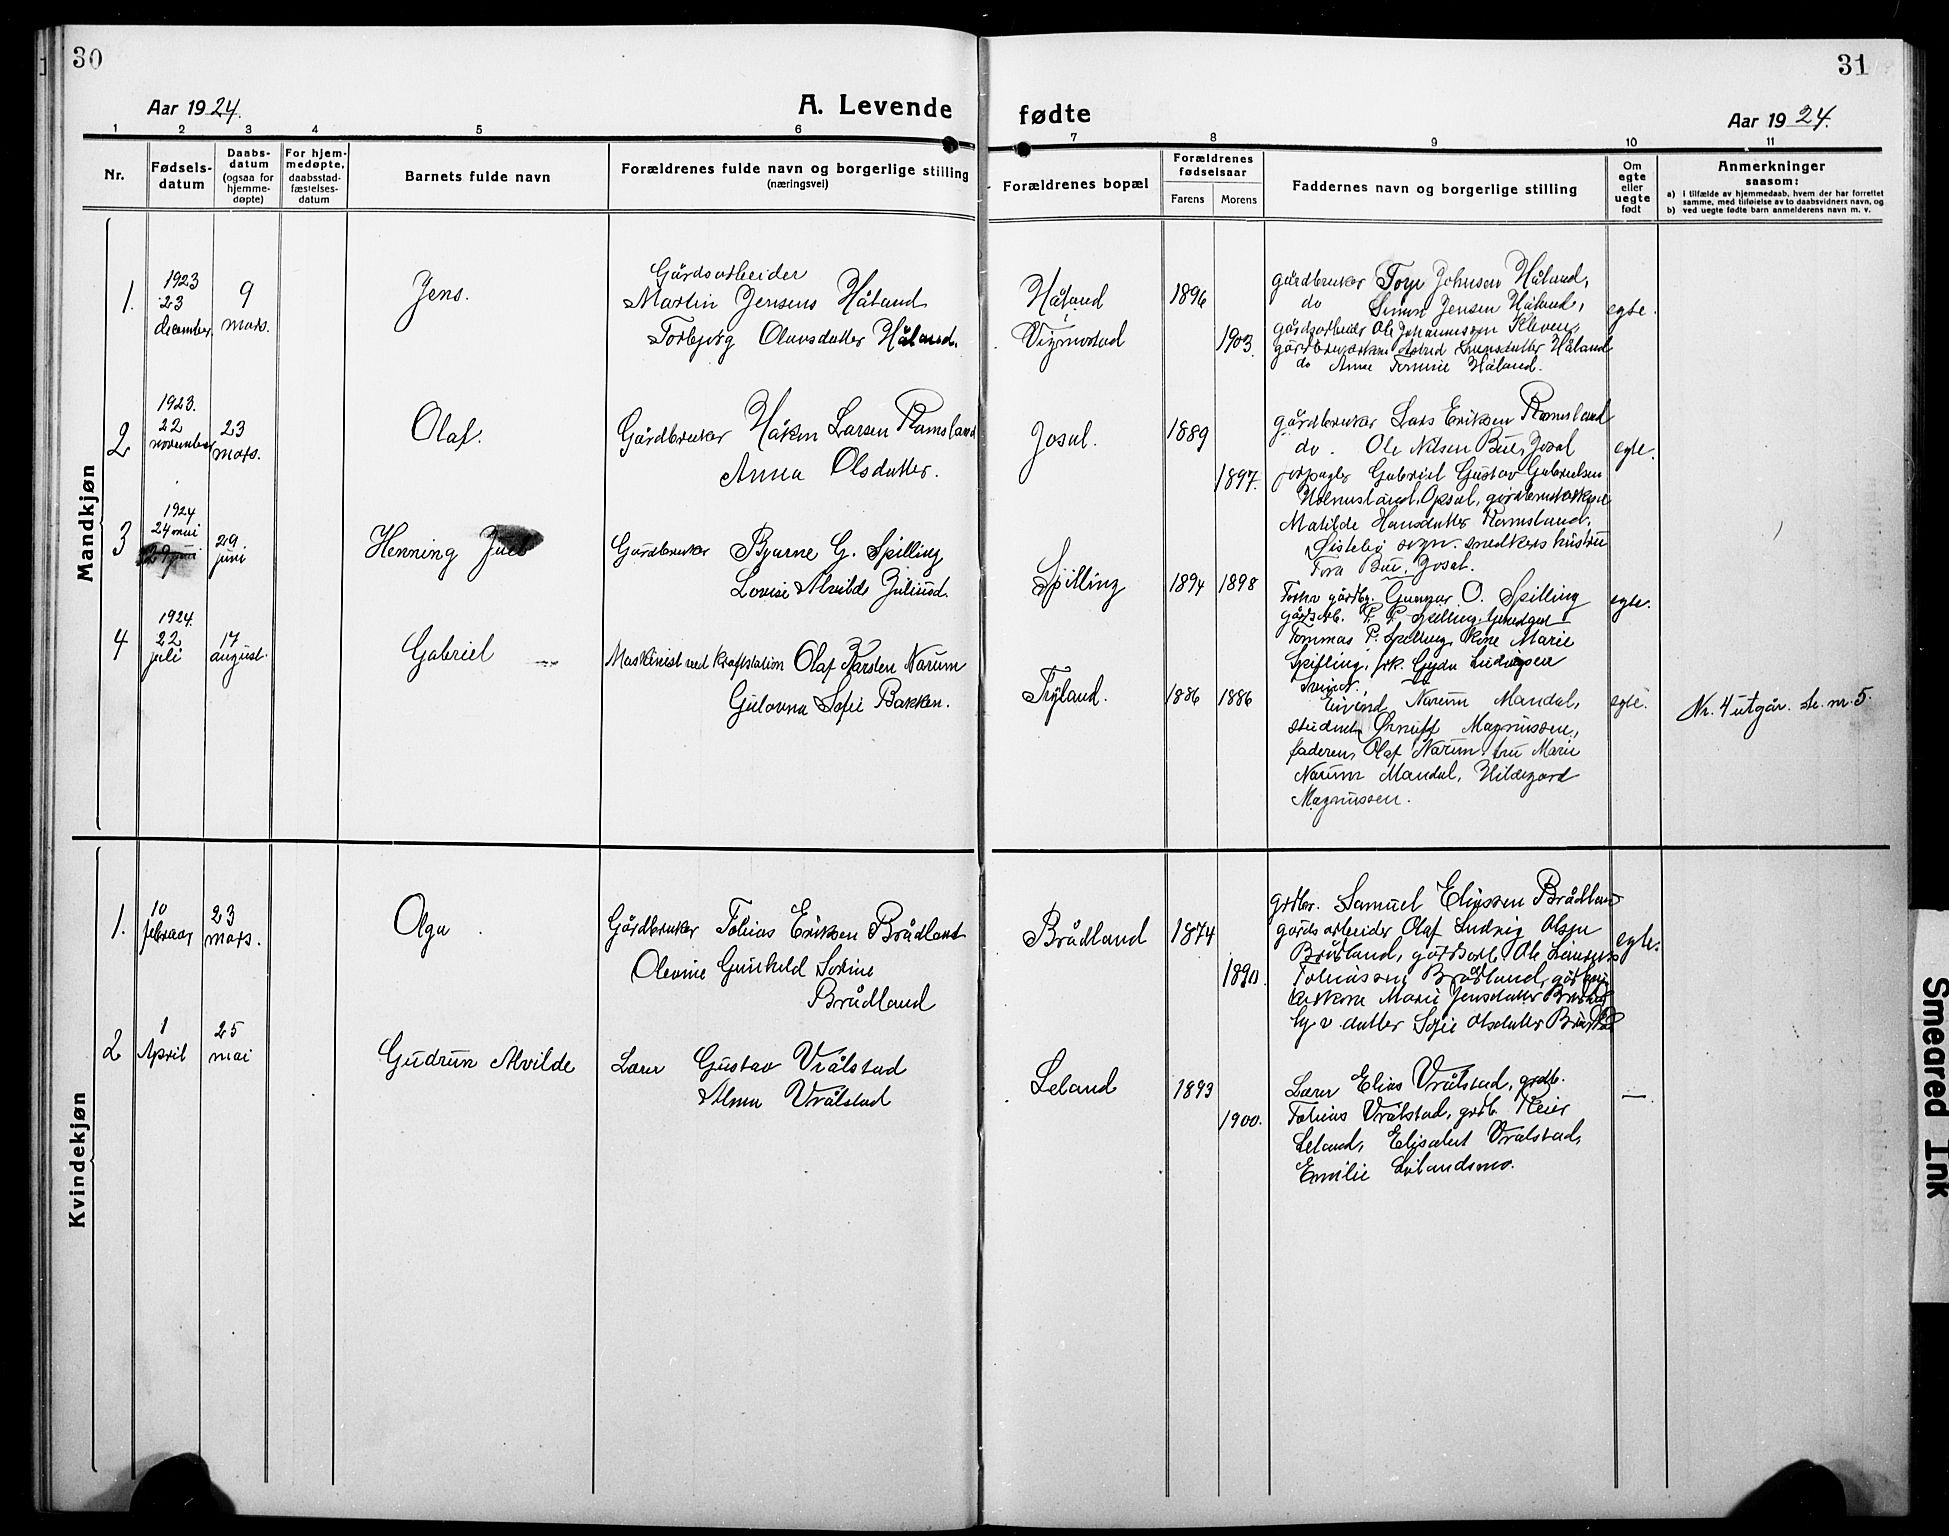 30
Aar 1924.
A. Levende
1 2 3 4 5 6
Nr.
Fødsels-
datum
Daabs-
datum
(ogsaa for
hjemme-
døpte)
For hjem-
medøpte,
daabsstad-
fæstelses-
datum
Barnets fulde navn
Forældrenes fulde navn og borgerlige stilling
(næringsvei)
Mandkjøn
1.
1923
23
december
9
mars.
Jens.
Gårdsarbeider
Martin Jensens Håland
Torbjørg Olausdatter Håland.
2
1923.
22
november
23
mars.
Olaf.
Gårdbruker Håkon Larsen Ramsland
Anna Olsdatter.
3
1924
24 mai
29 juni
29
juni
Henning Juel
Gårdbruker Bjarne G. Spilling
Lovise Alvilde Juliusd.
4
1924.
22
juli
17
august.
Gabriel
Maskinist ved kraftstation Olaf Karsten Narum
Gulovna Sofie Bakken.
Kvindekjøn
1.
10
februar
23
mars.
Olga
Gårdbruker Tobias Eriksen Brådland
Olevine Gunhild Sorine
Brådland
2
1
April
25
mai
Gudrun Alvilde
Lærer Gustav Vrålstad
Alma Vrålstad
31
fødte
Aar 1924.
7 8 9 10 11
Forældrenes bopæl
Forældrenes
fødselsaar
Farens Morens
Faddernes navn og borgerlige stilling
Om
egte
eller
uegte
født
Anmerkninger
saasom:
a) i tilfælde av hjemmedaab, hvem der har forrettet
samme, med tilføielse av to daabsvidners navn, og
b) ved uegte fødte barn anmelderens navn m. v.
Håland
i
Vigmostad
1896
1903.
gårdbruker Torje Johnsen Håland,
do Simon Jensen Håland,
gårdsarbeider Ole Johannesen Kleven,
Astrid Håland
do Anne Tomine Håland.
egte.
Josal.
1889
1897.
gårdbruker Lars Eriksen Ramsland
do. Ole Nilsen Bue, Josal
forpagter Gabriel Gustav Gabrielsen
Opsal,
Matilde Hansdatter Ramsland,
Øislebø sogn. snedkers hustru
Tora Bue, Josal.
egte.
Spilling
1894 1898
gårdbr. Gunnar O. Spilling
gårdsarb. P. P. Spilling,
Tommas P. Spilling, kone Marie
Spilling, frk. Gyda Ludvigsen
egte.
Tryland.
1886 1886
Eivind Narum Mandal,
student Magnussen,
faderen, Olaf Narum, fru Marie
Narum Mandal, Hildegard
Magnussen.
egte.
Nr. 4 utgår. se. nr. 5.
Brådland
1874
1890.
grdbr. Samuel Eliassen Brådland
gårdsarbeider Olaf Ludvig Olsen
Brådland, gårdsarb. Ole
Tobiassen Brådland,
Marie Jensdatter
datter Sofie Olsdatter
egte.
Leland
1893
1900.
Lærer Elias Vrålstad, grdb.
Tobias Vrålstad, grdb. Reier
Leland, Elisabet Vrålstad,
Emilie
—
Smeared Ink